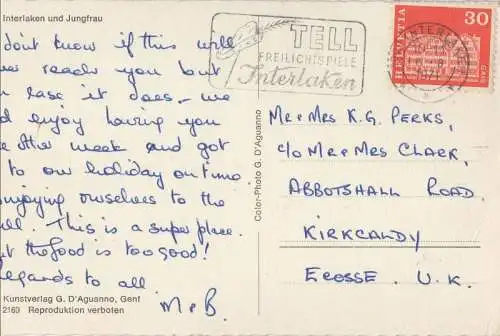 Interlaken und Jungfrau
don't know if this will
reach you but
case it does - we
enjoy having you
other week and got
to our holiday on time
enjoying ourselves to the
This is a super place.
the food is too good!
regards to all
M & B.
Kunstverlag G. D'Aguanno, Genf
2160 Reproduktion verboten
Color-Photo G. D'Aguanno
TELL
FREILICHTSPIELE
Interlaken
HELVETIA
30
INTERLAKEN
Mr & Mrs K.G. PERKS,
c/o Mr & Mrs CLARK,
ABBOTSHALL ROAD,
KIRKCALDY
ECOSSE. U.K.